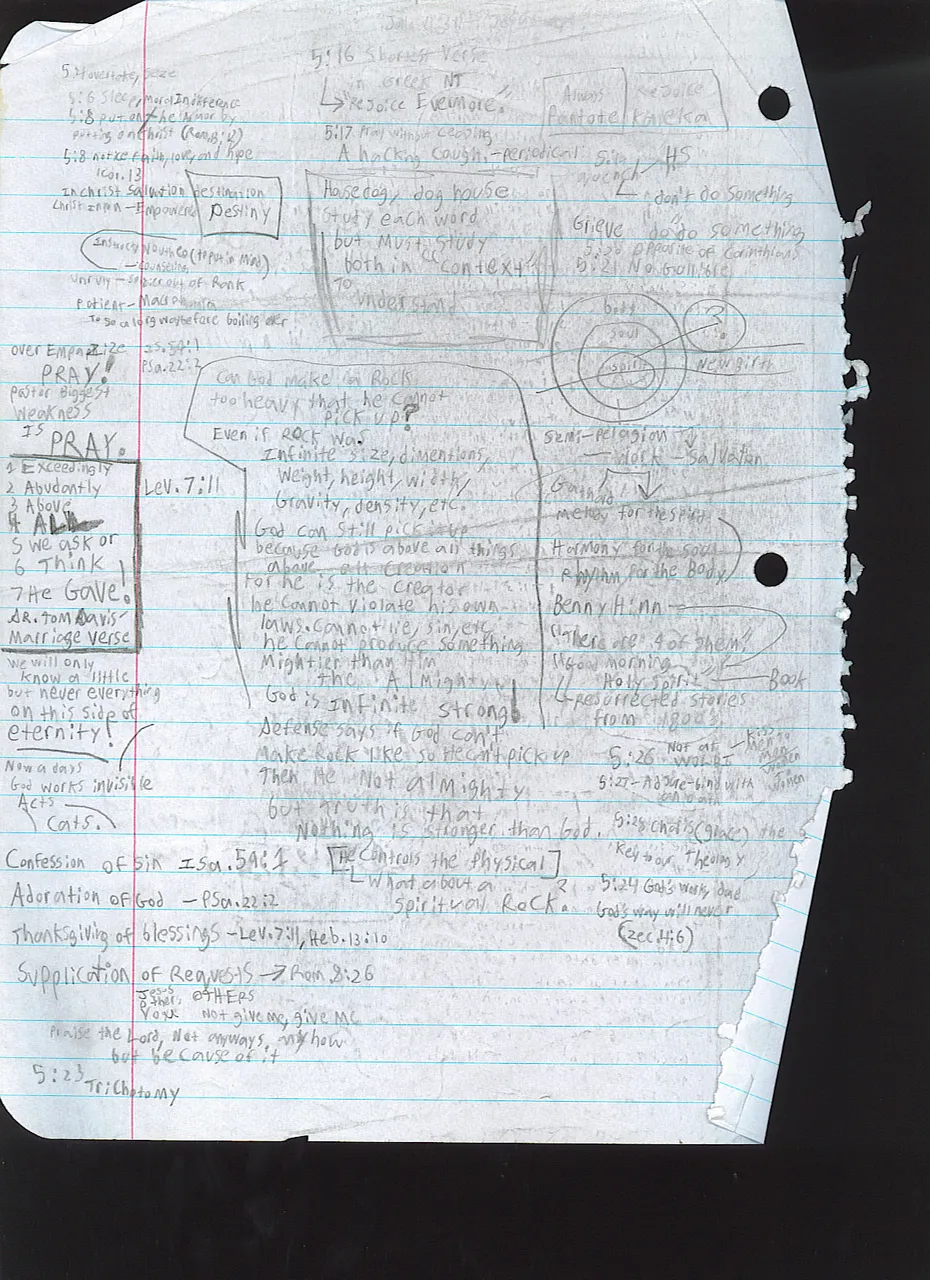 5:4 overtake, seize
5:6 Sleep, moral Indiference
5:8 put on the Armor by
putting on Christ (Rom.
5:8 note faith, love, and hope
1Cor. 13
In christ salvation destination
Christ in on - Empowered
Destiny
(to put in Mind)
counseling
unruly - out of Rank
Patient - Macro
To go a long way before boiling over
5:16 Shortest Verse
in Greek NT
Rejoice Evermore."
5:17 Pray without ceasing
A hacking cough, - periodical
Always Rejoice
Pantote
Hosedog, dog house
Study each word
but Must study
both in "context"
TO
understand
quench HS
don't do something
Grieve do do something
5:20 opposite of corinthians
5:21 No Gullible
body
soul
spirit
?
New Birth
over Empazize Is.59:1
PRAY! PSa.22:2
Pastor Biggest
weakness
IS
PRAY.
1 Exceedingly
2 Abudantly
3 Above
4 ALL
5 we ask or
6 Think
7 He Gave!
DR. Tom Davis'
Marriage verse
Lev. 7:11
we will only
know a little
but never everything
on this side of
eternity!
Now a days
God works invisible
Acts
Cats.
Can God make a Rocks
too heavy that he cannot
Pick up?
Even if Rock was
Infinite size, dimentions,
weight, height, width,
Gravity, density, etc.
God can still pick it up
because God is above all things
above all creation
for he is the creator
he cannot violate his own
laws. Cannot lie, sin, etc.
he cannot produce something
Mightier than Him
the Almighty
God is Infinite strong!
Defense says if God can't
Make Rock like so He can't pick up
Then He Not almighty
but truth is that
Nothing is stronger than God.
[He controls the physical]
What about a
spiritual Rock. ?
semi-pelagion
work - Salvation
Gothard
melody for the spirit
Harmony for the soul
Rhythm for the Body
Benny Hinn
"There are 9 of them"
"Good morning
Holy Spirit" Book
Resurrected stories
from 1800's
5:26 Not at
5:27 - Adjure - bind with
an oath
5:28 charis (grace) the
Key to our Theology
5:24 God's work, dad
God's way will never
(Zec.4:6)
Confession of sin Isa. 59:1
Adoration of God - PSa.22:2
Thanksgiving of blessings - Lev. 7:11, Heb. 13:10
Supplication of Requests → Rom 8:26
Jesus
others OTHERS
Youx Not give me, give me
Praise the Lord, Not anyways, anyhow
but because of it
5:23 Trichotomy